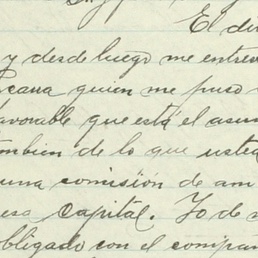 El di
y desde luego me entrev
icana quien me puso
favorable que está el asun
ambien de lo que usted
una comisión de am
esa Capital. Yo de
obligado con el compañ